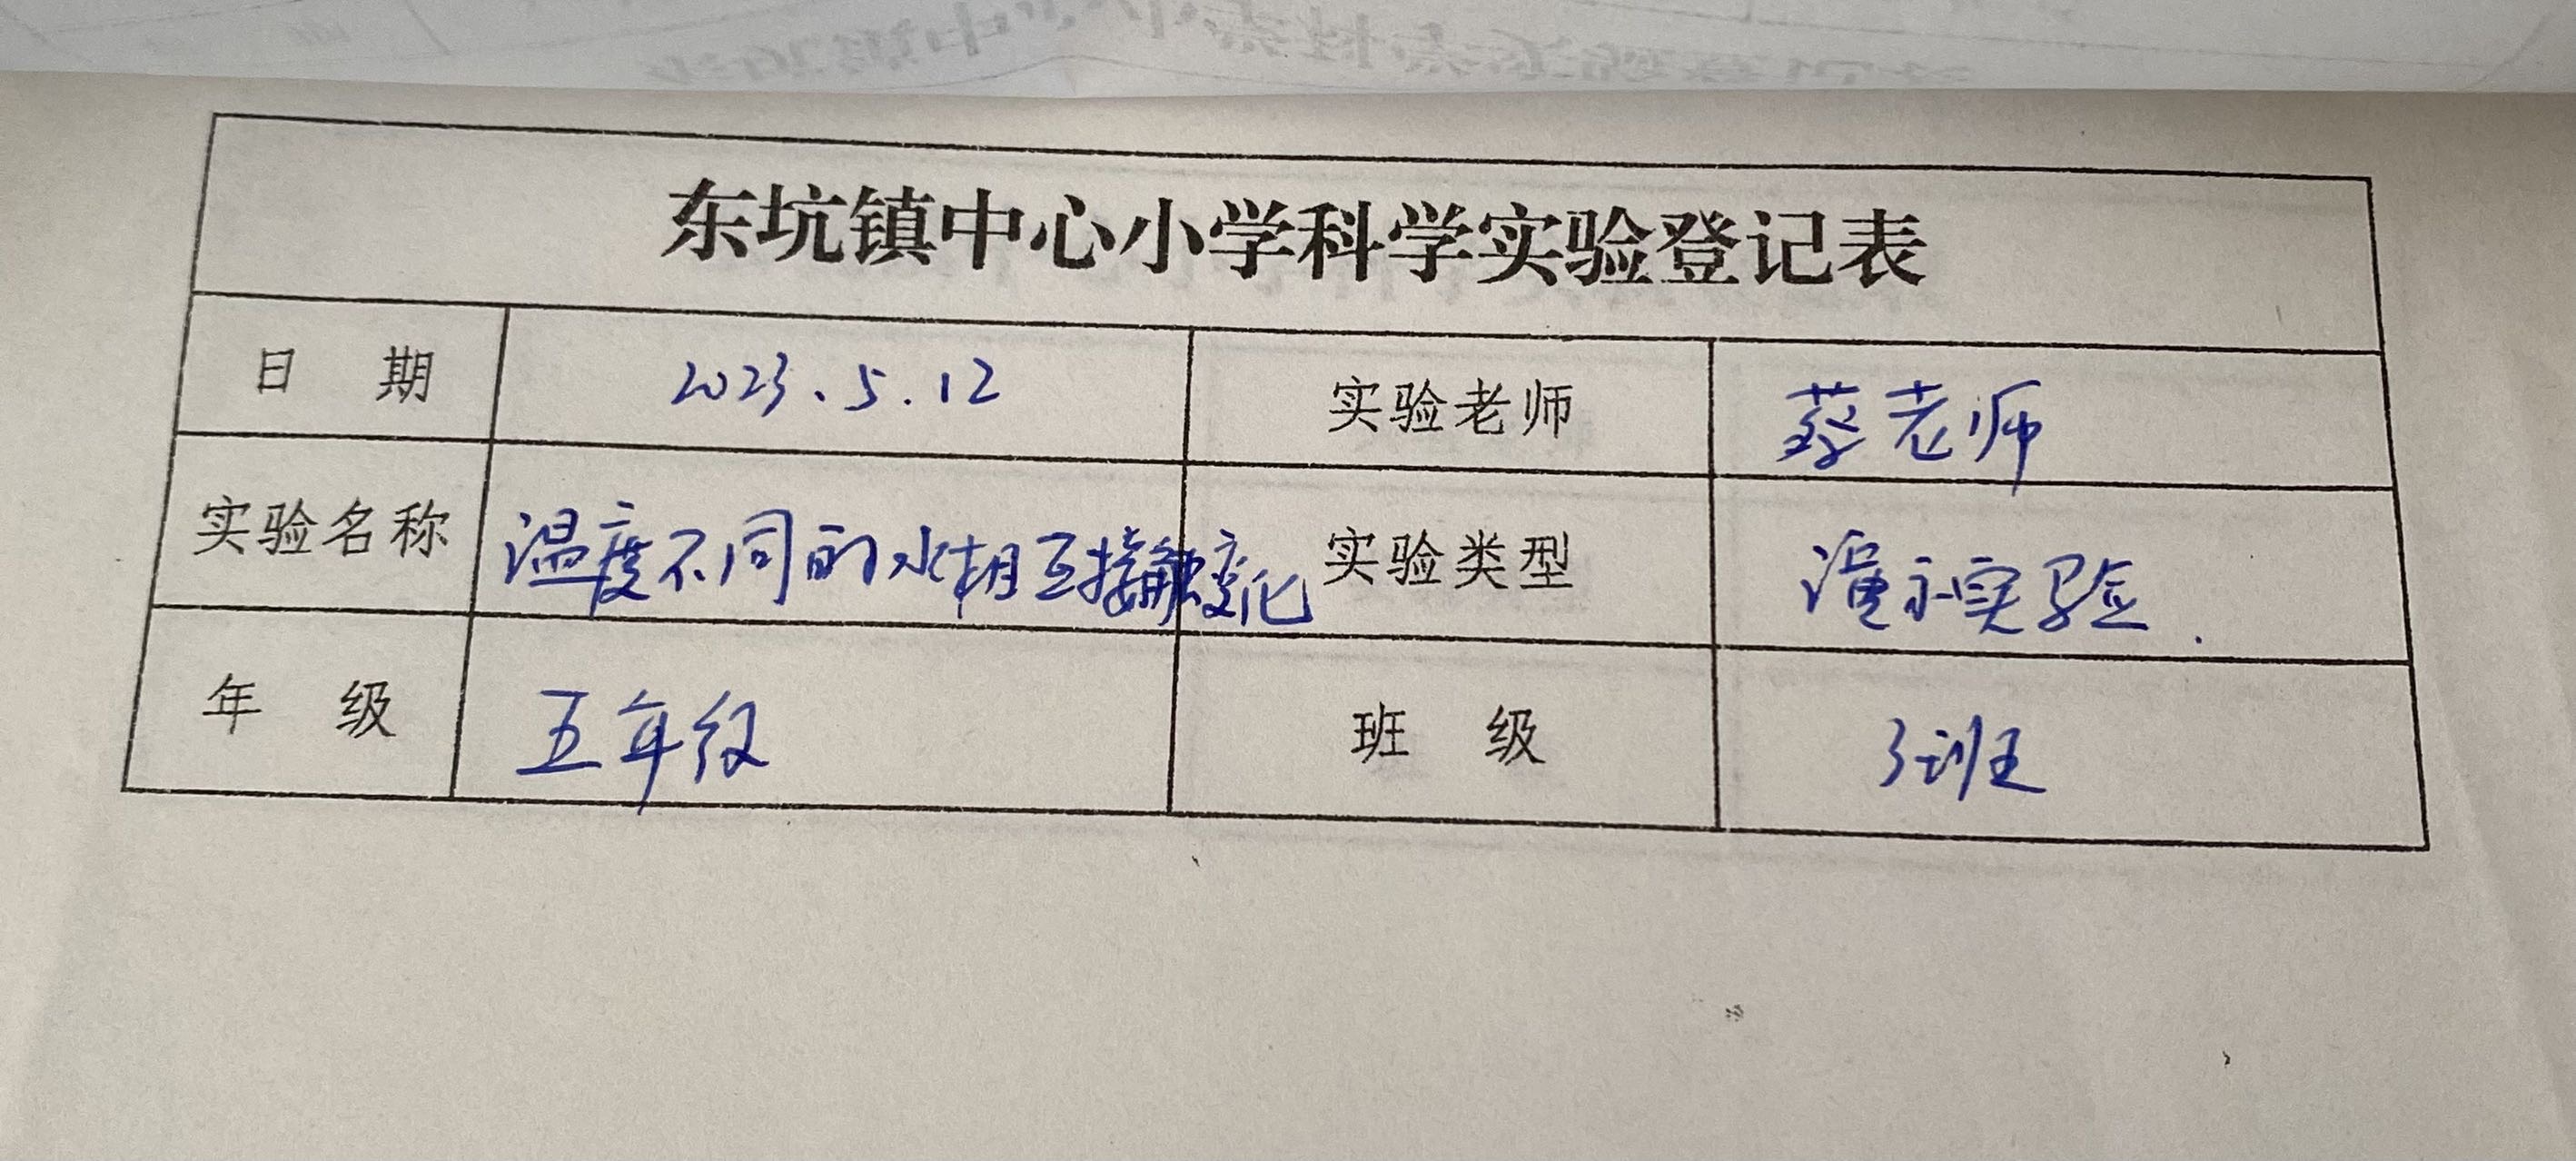 东坑镇中心小学科学实验登记表
日 期 2023.5.12 实验老师 蔡老师
实验名称 温度不同的水相互接触变化 实验类型 演示实验.
年 级 五年级 班 级 3班